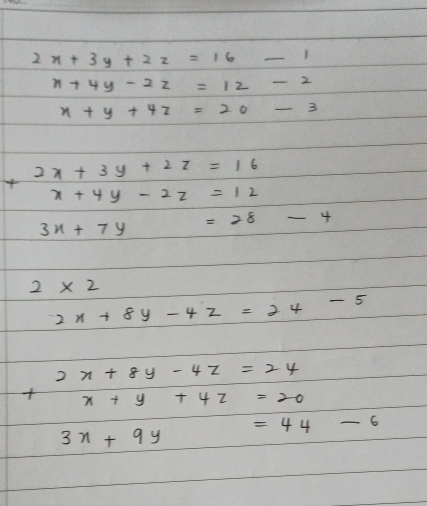 2x + 3y + 2z = 16 — 1
x + 4y - 2z = 12 - 2
x + y + 4z = 20 - 3
2x + 3y + 2z = 16
+ x + 4y - 2z = 12
3x + 7y = 28 - 4
2 x 2
2x + 8y - 4z = 24 - 5
2x + 8y - 4z = 24
+ x + y + 4z = 20
3x + 9y = 44 - 6